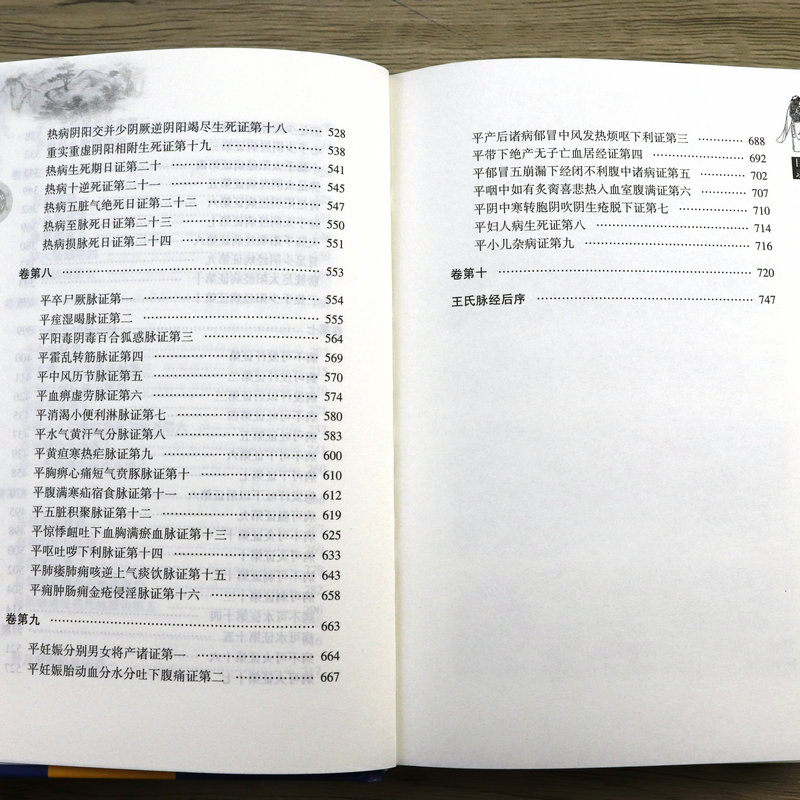 热病阴阳交并少阴厥逆阴阳竭尽生死证第十八 …… 528
重实重虚阴阳相附生死证第十九 …… 538
热病生死期日证第二十 …… 541
热病十逆死证第二十一 …… 545
热病五脏气绝死日证第二十二 …… 547
热病至脉死日证第二十三 …… 550
热病损脉死日证第二十四 …… 551
卷第八 …… 553
平卒尸厥脉证第一 …… 554
平痓湿暍脉证第二 …… 555
平阳毒阴毒百合狐惑脉证第三 …… 564
平霍乱转筋脉证第四 …… 569
平中风历节脉证第五 …… 570
平血痹虚劳脉证第六 …… 574
平消渴小便利淋脉证第七 …… 580
平水气黄汗气分脉证第八 …… 583
平黄疸寒热疟脉证第九 …… 600
平胸痹心痛短气贲豚脉证第十 …… 610
平腹满寒疝宿食脉证第十一 …… 612
平五脏积聚脉证第十二 …… 619
平惊悸衄吐下血胸满瘀血脉证第十三 …… 625
平呕吐哕下利脉证第十四 …… 633
平肺痿肺痈咳逆上气痰饮脉证第十五 …… 643
平痈肿肠痈金疮侵淫脉证第十六 …… 658
卷第九 …… 663
平妊娠分别男女将产诸证第一 …… 664
平妊娠胎动血分水分吐下腹痛证第二 …… 667
平产后诸病郁冒中风发热烦呕下利证第三 …… 688
平带下绝产无子亡血居经证第四 …… 692
平郁冒五崩漏下经闭不利腹中诸病证第五 …… 702
平咽中如有炙脔喜悲热入血室腹满证第六 …… 707
平阴中寒转胞阴吹阴生疮脱下证第七 …… 710
平妇人病生死证第八 …… 714
平小儿杂病证第九 …… 716
卷第十 …… 720
王氏脉经后序 …… 747